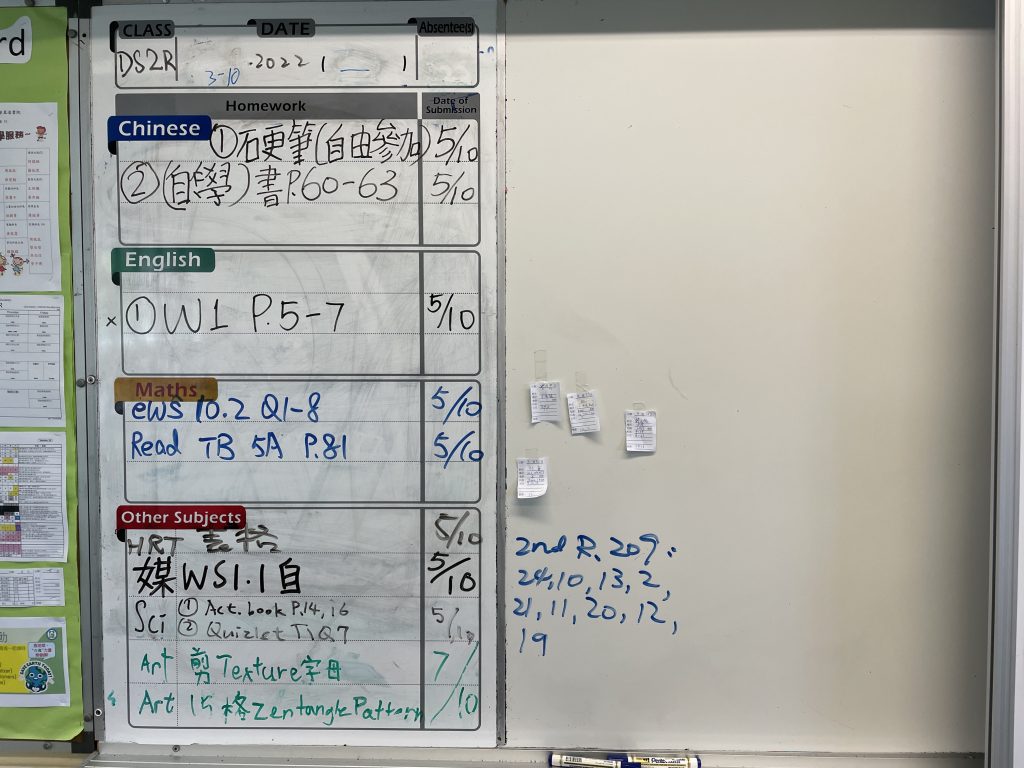 rd
CLASS DATE Absentee(s)
DS2R 3-10 .2022 ( )
Homework Date of Submission
Chinese
①硬筆(自由參加) 5/10
②(自學)書P.60-63 5/10
English
× ①W1 P.5-7 5/10
Maths
ews 10.2 Q1-8 5/10
Read TB 5A P.81 5/10
Other Subjects
HRT 5/10
媒 WS1.1自 5/10
Sci ① Act. book P.14, 16 5/10
② Quizlet T1Q7
Art 剪Texture字母 7/10
Art 15格Zentangle Pattern
2nd R. 209:
24, 10, 13, 2,
21, 11, 20, 12,
19